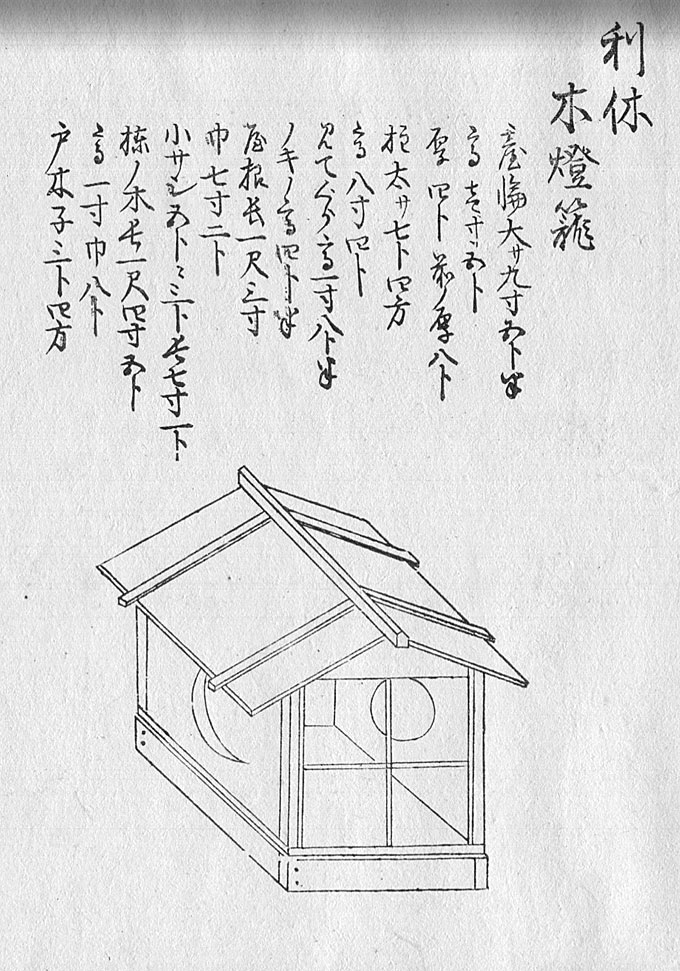 利休
木燈籠
臺輪大サ九寸五ト半
高壱寸五ト
厚四ト 厚八ト
柱太サ七ト四方
高八寸四ト
高一寸八ト半
ノキノ高四ト半
屋根長一尺三寸
巾七寸二ト
五ト三ト長七寸一ト
棟ノ木長一尺四寸五ト
高一寸巾八ト
戸木子三ト四方